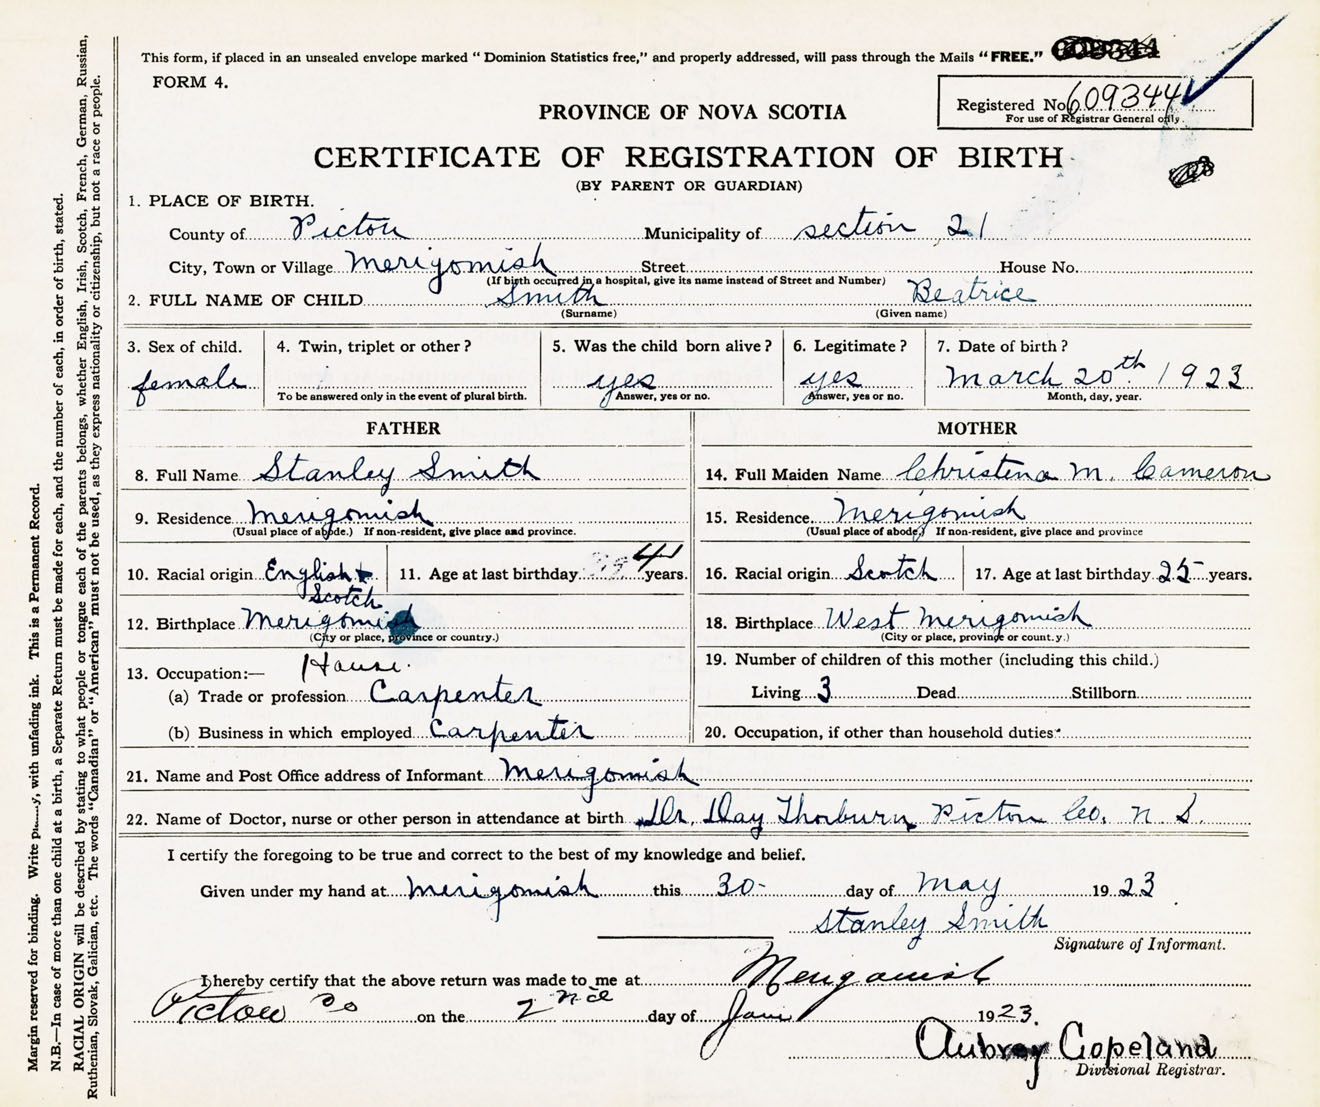 This form, if placed in an unsealed envelope marked “ Dominion Statistics free,” and properly addressed, will pass through the Mails “ FREE.”
FORM 4.
Registered No. 609344
For use of Registrar General only.
PROVINCE OF NOVA SCOTIA
CERTIFICATE OF REGISTRATION OF BIRTH
(BY PARENT OR GUARDIAN)
1. PLACE OF BIRTH.
County of Pictou Municipality of section 21
City, Town or Village Merigomish Street House No.
(If birth occurred in a hospital, give its name instead of Street and Number)
2. FULL NAME OF CHILD Smith Beatrice
(Surname) (Given name)
3. Sex of child. 4. Twin, triplet or other ? 5. Was the child born alive ? 6. Legitimate ? 7. Date of birth ?
female yes yes March 20th. 1923
To be answered only in the event of plural birth. Answer, yes or no. Answer, yes or no. Month, day, year.
FATHER MOTHER
8. Full Name Stanley Smith 14. Full Maiden Name Christena M. Cameron
9. Residence Merigomish 15. Residence Merigomish
(Usual place of abode.) If non-resident, give place and province. (Usual place of abode.) If non-resident, give place and province
10. Racial origin English + Scotch 11. Age at last birthday 41 years. 16. Racial origin Scotch 17. Age at last birthday 25 years.
12. Birthplace Merigomish 18. Birthplace West Merigomish
(City or place, province or country.) (City or place, province or count.y.)
13. Occupation:— House. 19. Number of children of this mother (including this child.)
(a) Trade or profession Carpenter Living 3 Dead Stillborn
(b) Business in which employed Carpenter 20. Occupation, if other than household duties
21. Name and Post Office address of Informant Merigomish
22. Name of Doctor, nurse or other person in attendance at birth Dr. Day Thorburn Pictou Co. N. S.
I certify the foregoing to be true and correct to the best of my knowledge and belief.
Given under my hand at Merigomish this 30- day of May 1923
Stanley Smith
Signature of Informant.
I hereby certify that the above return was made to me at Merigomish
Pictou Co on the 2nd day of June 1923.
Aubrey Copeland
Divisional Registrar.
Margin reserved for binding. Write with unfading ink. This is a Permanent Record.
N.B.—In case of more than one child at a birth, a Separate Return must be made for each, and the number of each, in order of birth, stated.
RACIAL ORIGIN will be described by stating to what people or tongue each of the parents belongs, whether English, Irish, Scotch, French, German, Russian,
Ruthenian, Slovak, Galician, etc. The words “Canadian” or “American” must not be used, as they express nationality or citizenship, but not a race or people.